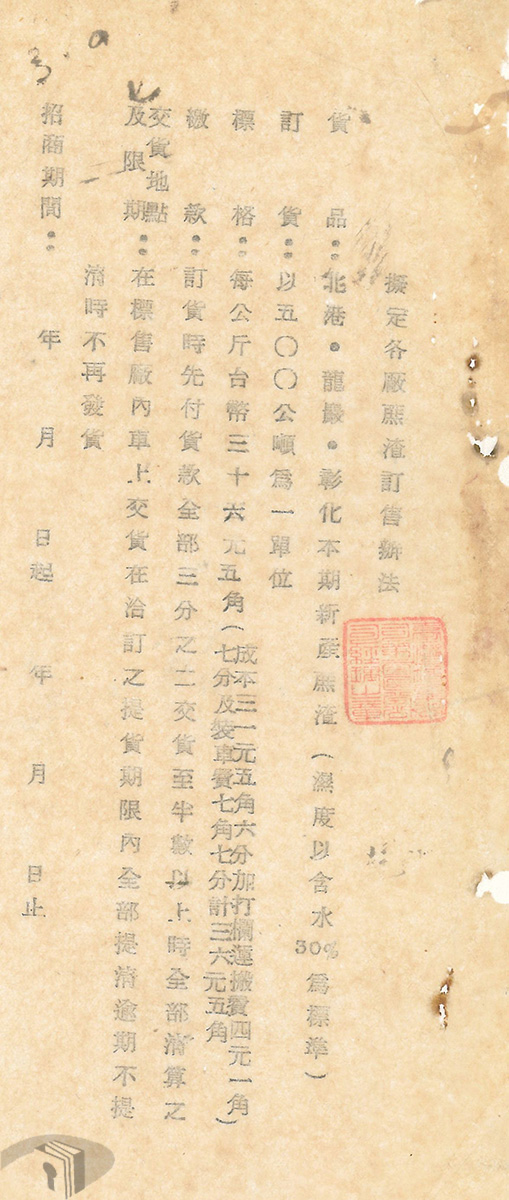 擬定各廠熏渣訂售辦法
貨品：北港・龍巖・彰化本期新產熏渣（濕度以含水30%為標準）
訂貨：以五〇〇公噸為一單位
標格：每公斤台幣三十六元五角（成本三一元五角六分加打欄運搬費四元一角
七分及裝車費七角七分計三六元五角）
繳款：訂貨時先付貨款全部三分之二交貨至半數以上時全部清算之
交貨地點
及限期：在標售廠內車上交貨在洽訂之提貨期限內全部提清逾期不提
清時不再發貨
招商期間： 年 月 日起 年 月 日止